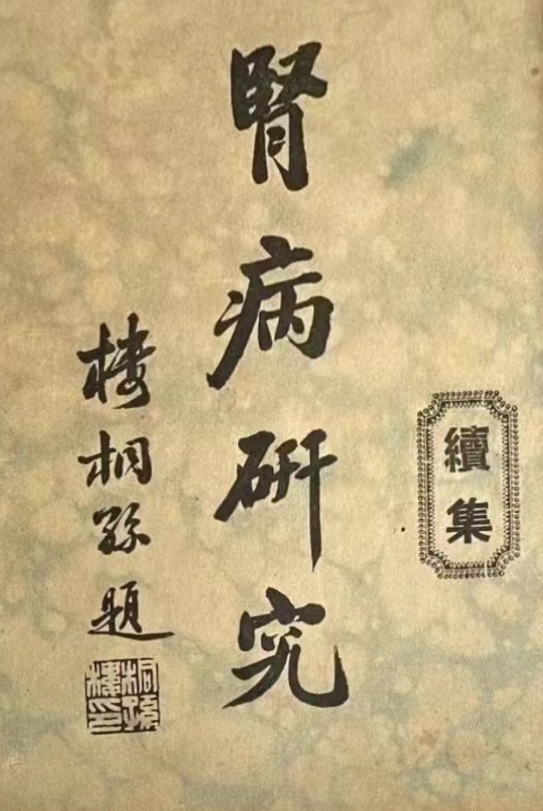 續集
腎病研究
樓桐孫題
樓桐孫印